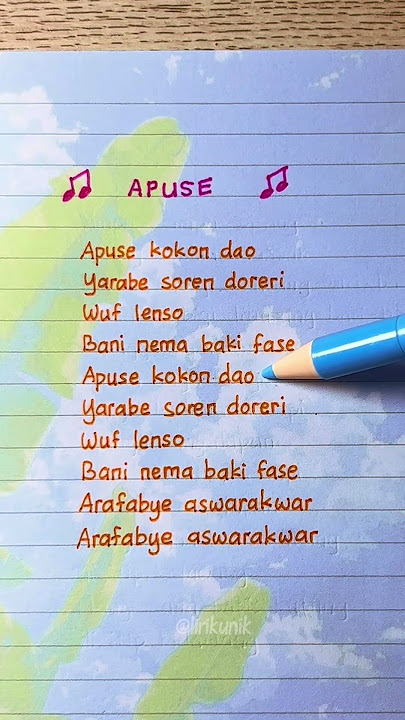 APUSE
Apuse kokon dao
Yarabe soren doreri
Wuf lenso
Bani nema baki fase
Apuse kokon dao
Yarabe soren doreri
Wuf lenso
Bani nema baki fase
Arafabye aswarakwar
Arafabye aswarakwar
@lirikunik